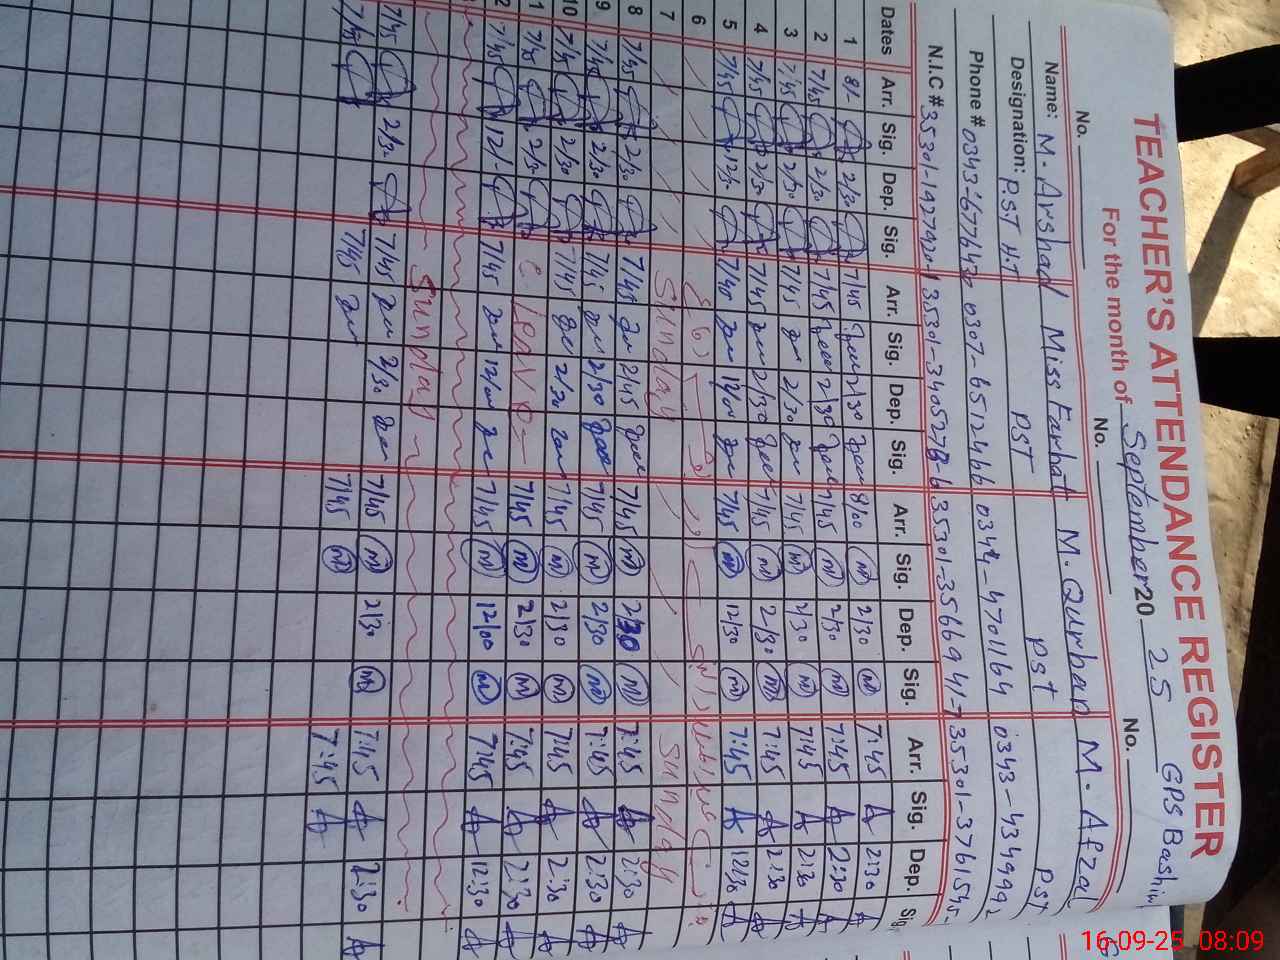 TEACHER'S ATTENDANCE REGISTER
For the month of September 2025 GPS Bashir
No. No. No.
Name: M. Arshad Miss Farhat M. Qurban M. Afzal
Designation: P.S.T H.T PST PST PST
Phone # 0343-6776430 0307-6512466 0344-4701164 0343-4349992
N.I.C # 35301-1927920-1 35301-3405278-6 35301-3566941-7 35301-3761545-
Dates Arr. Sig. Dep. Sig. Arr. Sig. Dep. Sig. Arr. Sig. Dep. Sig. Arr. Sig. Dep. Sig
1 8/- 2/30 7/45 2/30 8/00 M 2/30 M 7:45 A 2:30 A
2 7/45 2/30 7/45 2/30 7/45 M 2/30 M 7:45 A 2:30 A
3 7/45 2/30 7/45 2/30 7/45 M 2/30 M 7:45 A 2:30 A
4 7/45 2/30 7/45 2/30 7/45 M 2/30 M 7:45 A 2:30 A
5 7/45 12/30 7/45 12/00 7/45 M 12/30 M 7:45 A 12:30 A
6
7 Sunday Sunday
8 7/45 2/30 7/45 2/45 7/45 M 2/30 M 7:45 A 2:30 A
9 7/45 2/30 7/45 2/30 7/45 M 2/30 M 7:45 A 2:30 A
10 7/45 2/30 7/45 2/30 7/45 M 2/30 M 7:45 A 2:30 A
1 7/45 2/30 C. Leave 7/45 M 2/30 M 7:45 A 2:30 A
2 7/45 12/- 7/45 12/00 7/45 M 12/00 M 7:45 A 12:30 A
Sunday
7/45 2/30 7/45 2/30 7/45 M 2/30 M 7:45 A 2:30 A
7/45 7/45 7/45 M 7:45 A
16-09-25 08:09